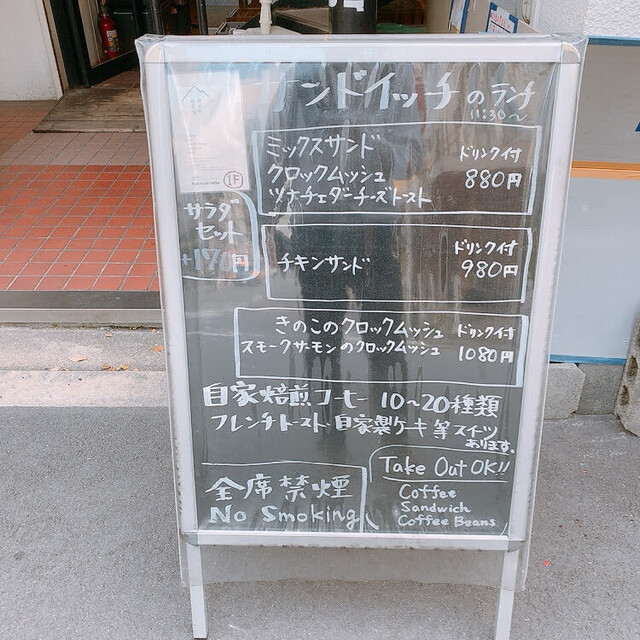 サンドイッチのランチ
11:30～
ミックスサンド
クロックムッシュ
ツナチェダーチーズトースト
ドリンク付
880円
1F
サラダ
セット
+170円
チキンサンド
ドリンク付
980円
きのこのクロックムッシュ ドリンク付
スモークサーモンのクロックムッシュ 1080円
自家焙煎コーヒー 10～20種類
フレンチトースト・自家製ケーキ等スイーツ
あります。
全席禁煙
No Smoking
Take Out OK!!
Coffee
Sandwich
Coffee Beans